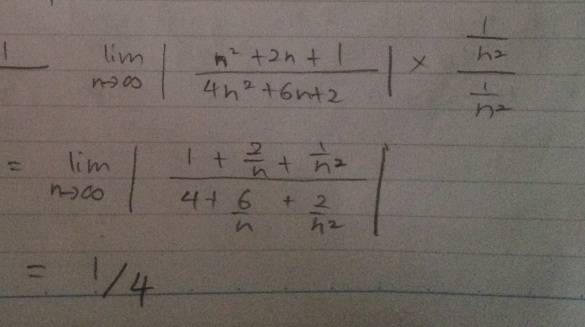 1 lim n→∞ | (n² + 2n + 1)/(4n² + 6n + 2) | × (1/n²)/(1/n²)
= lim n→∞ | (1 + 2/n + 1/n²)/(4 + 6/n + 2/n²) |
= 1/4